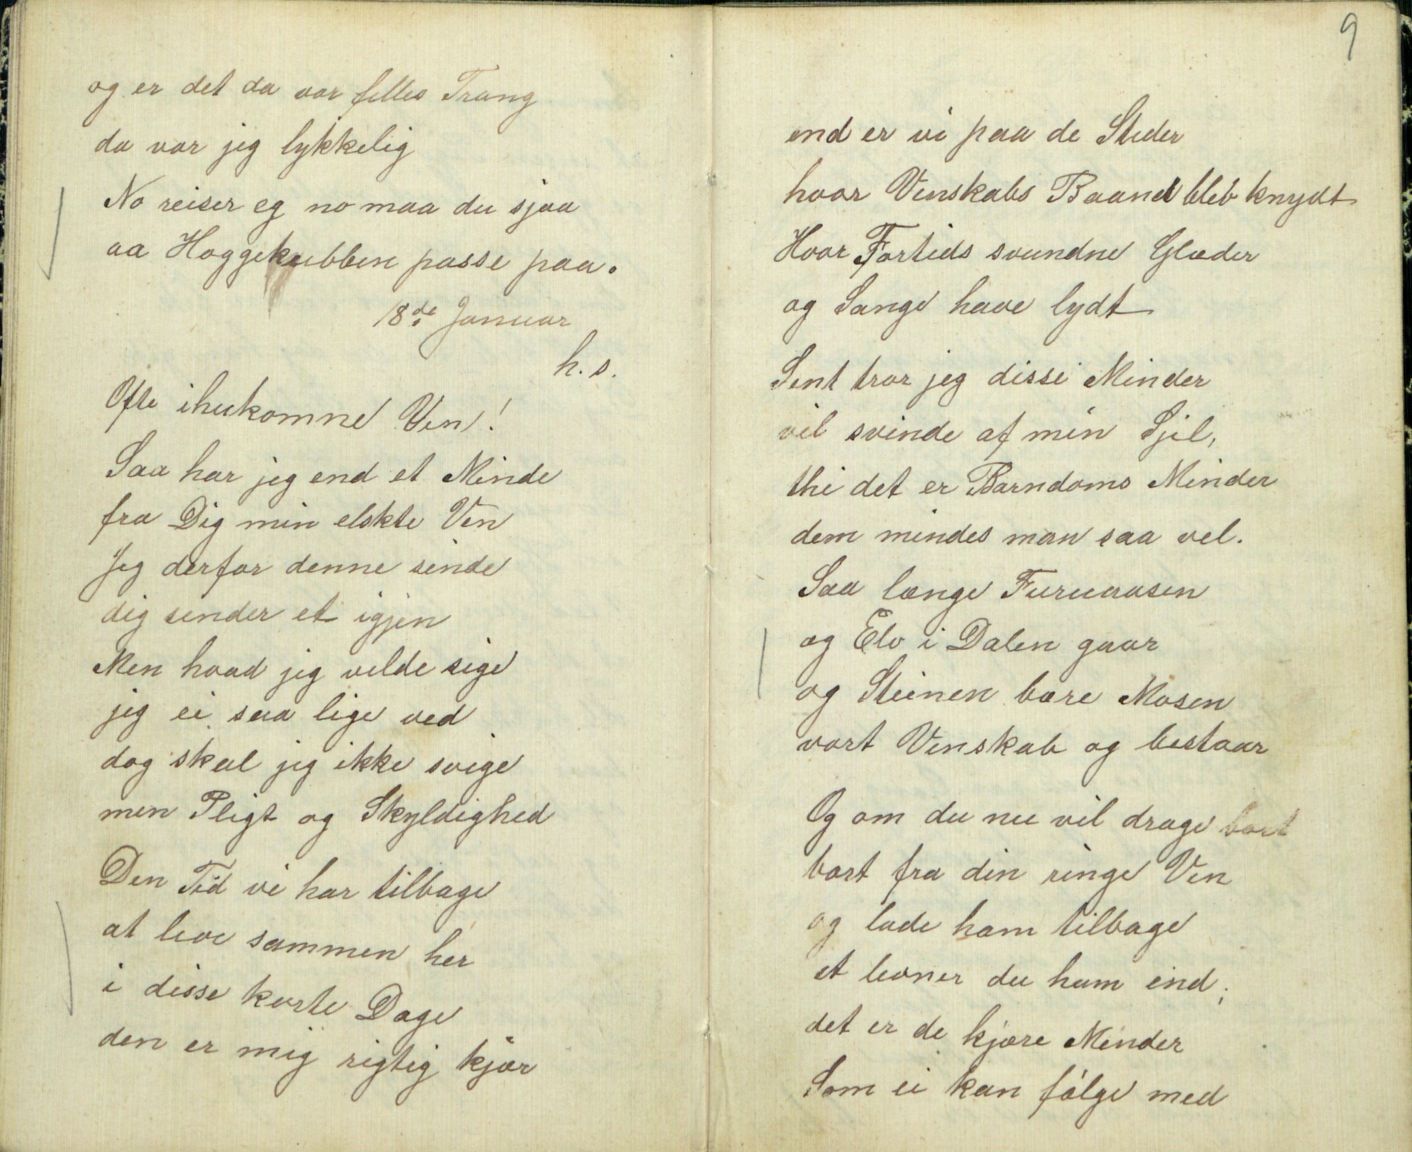 og er det da vor felles Trang
da var jeg lykkelig
No reiser eg no maa du sjaa
aa Hoggekubben passe paa.
18de Januar
h. s.
Ofte ihukomne Ven!
Saa har jeg end et Minde
fra Dig min elskte Ven
Jeg derfor denne sinde
dig sender et igjen
Men hvad jeg vilde sige
jeg ei saa lige ved
dog skal jeg ikke svige
min Pligt og Skyldighed
Den Tid vi har tilbage
at leve sammen her
i disse korte Dage
den er mig rigtig kjær
9
end er vi paa de Steder
hvor Venskabs Baand bleb knydt
Hvor Fortids svundne Glæder
og Sange have lydt
Sent tror jeg disse Minder
vil svinde af min Sjel,
thi det er Barndoms Minder
dem mindes man saa vel.
Saa længe Furuaasen
og Elv i Dalen gaar
og Steinen bære Mosen
vort Venskab og bestaar
Og om du nu vil drage bort
bort fra din ringe Ven
og lade ham tilbage
et levner du ham end;
det er de kjære Minder
Som ei kan følge med